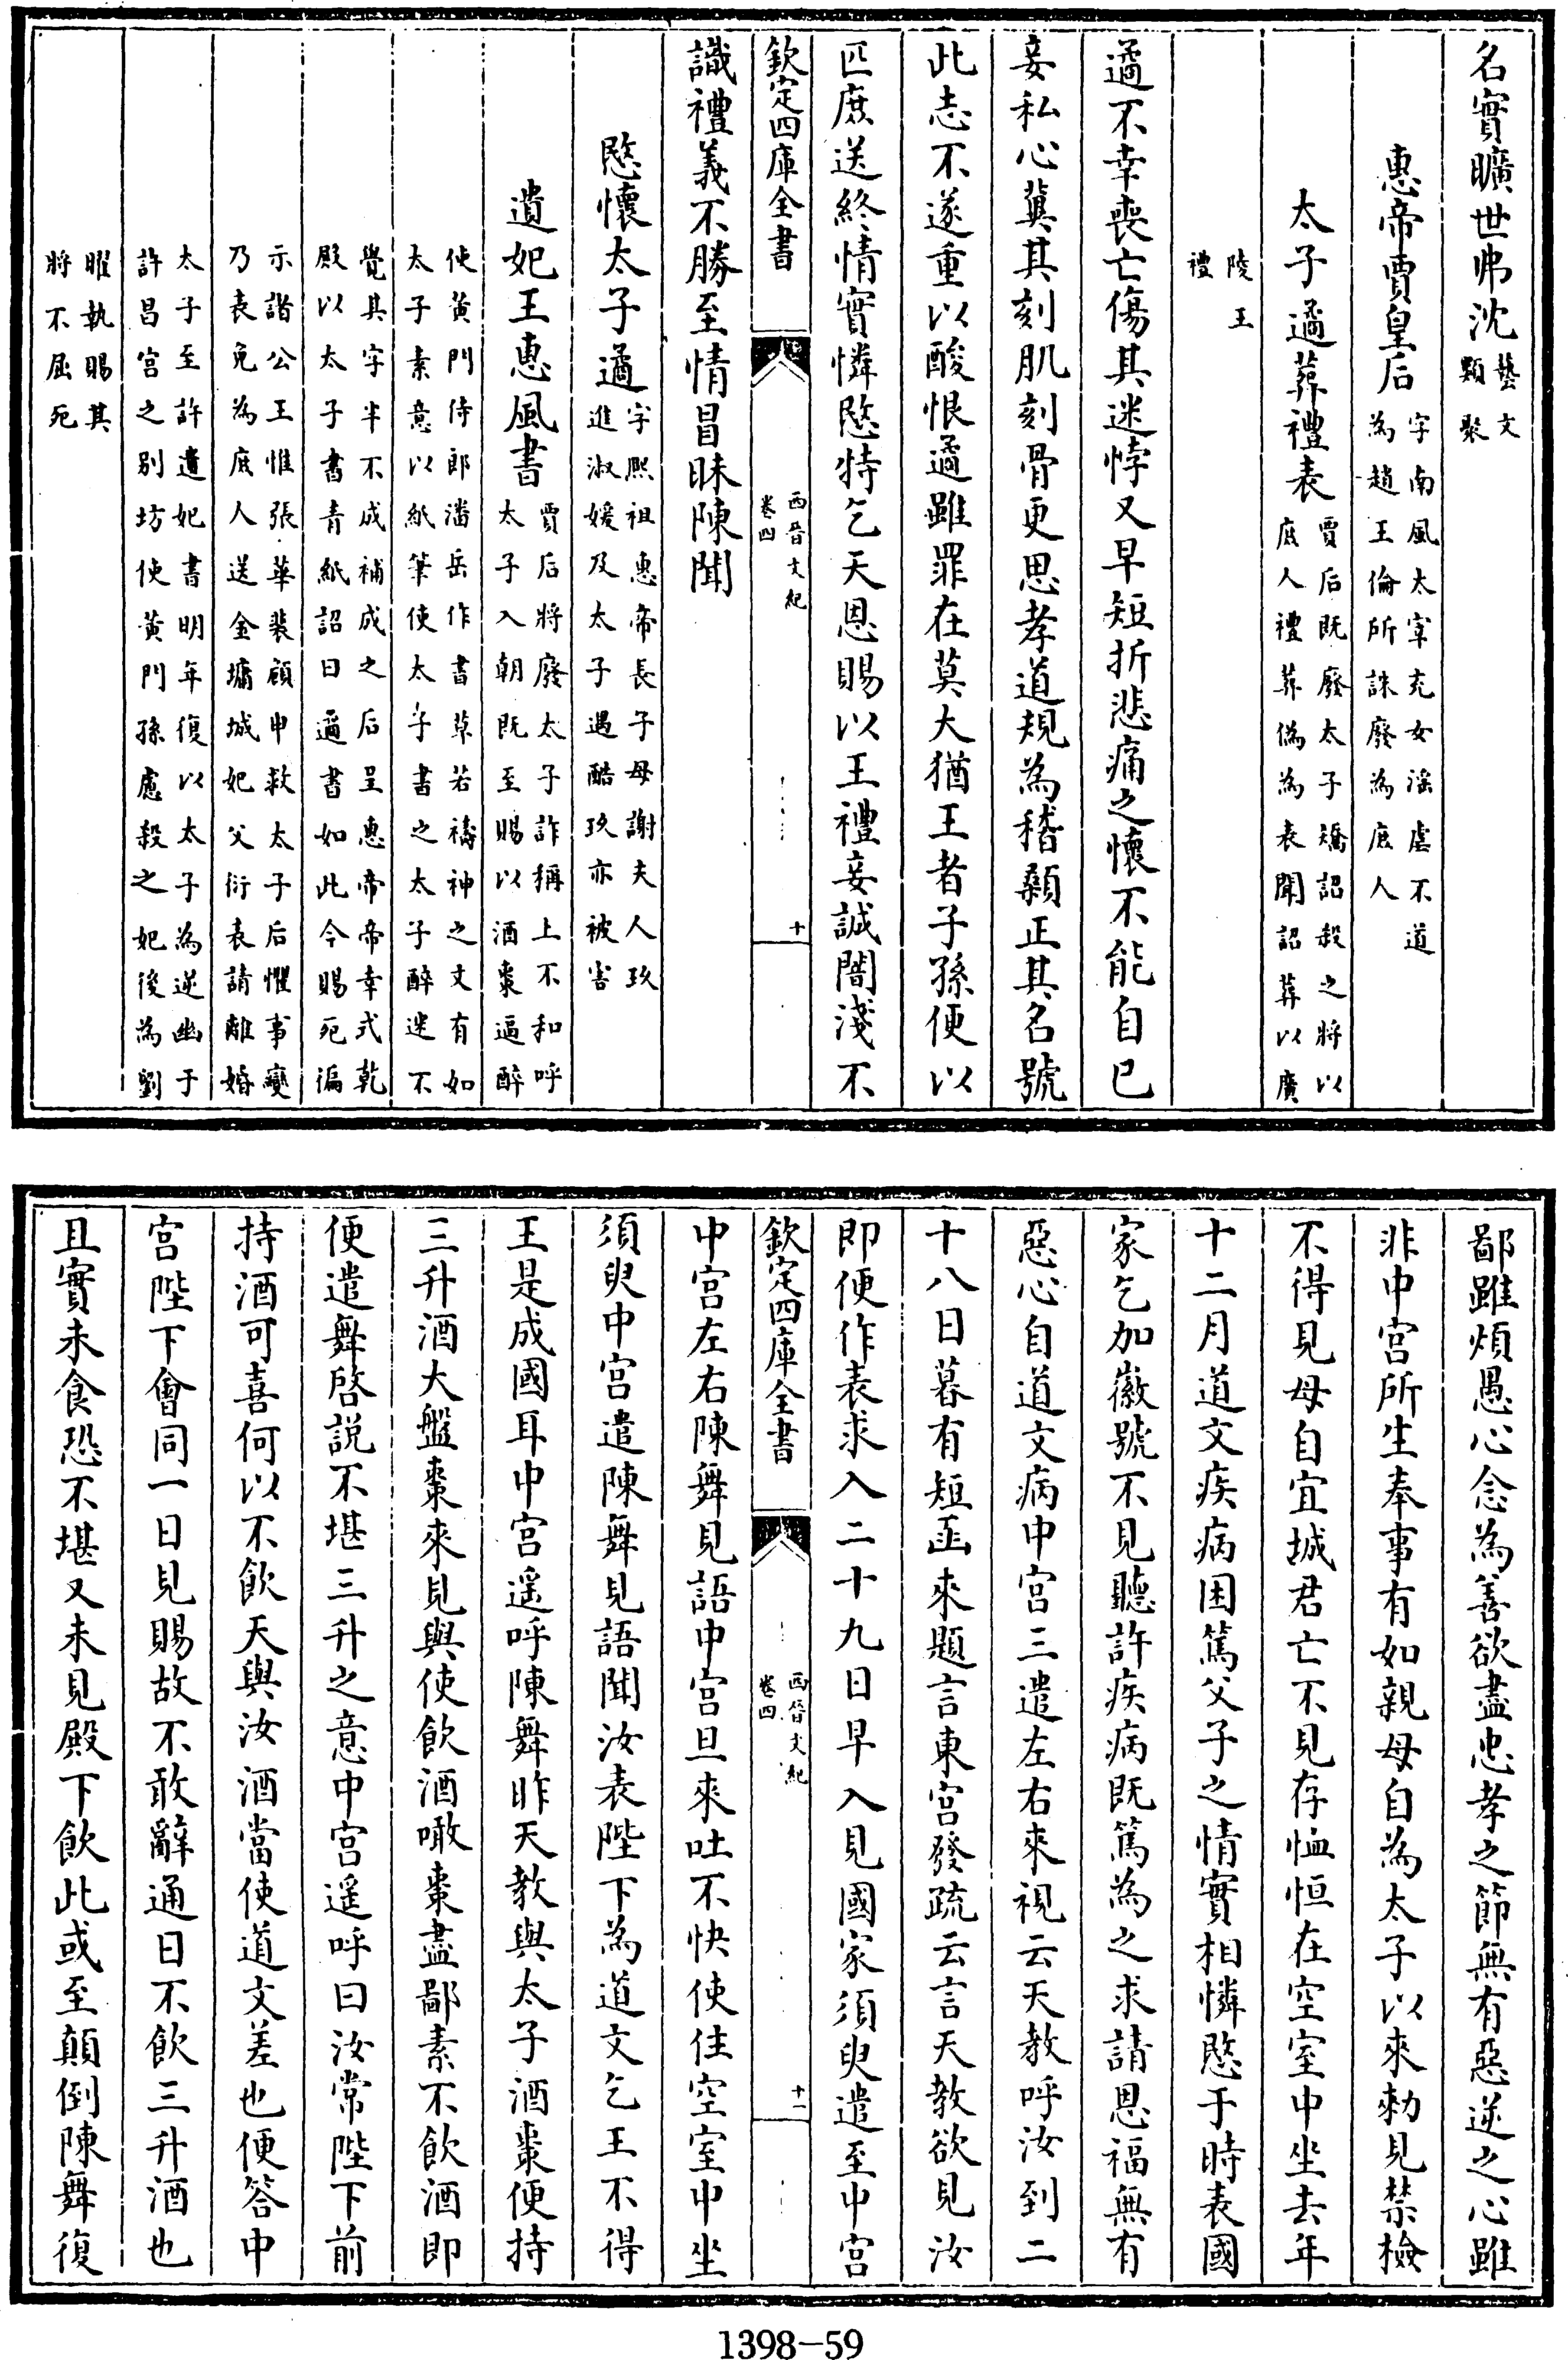 名實曠世弗沈藝文
類聚
惠帝賈皇后字南風太宰充女淫虐不道
為趙王倫所誅廢為庶人
太子遹葬禮表賈后既廢太子矯詔殺之將以
庶人禮葬偽為表聞詔葬以廣
陵王
禮
遹不幸喪亡傷其迷悖又早短折悲痛之懷不能自已
妾私心冀其刻肌刻骨更思孝道規為稽顙正其名號
此志不遂重以酸恨遹雖罪在莫大猶王者子孫便以
匹庶送終情實憐愍特乞天恩賜以王禮妾誠闇淺不
欽定四庫全書
西晉文紀
卷四
十
識禮義不勝至情冒昧陳聞
愍懷太子遹字熙祖惠帝長子母謝夫人玖
進淑媛及太子遇酷玖亦被害
遺妃王惠風書賈后將廢太子詐稱上不和呼
太子入朝既至賜以酒棗逼醉
使黃門侍郎潘岳作書草若禱神之文有如
太子素意以紙筆使太子書之太子醉迷不
覺其字半不成補成之后呈惠帝帝幸式乾
殿以太子書青紙詔曰遹書如此今賜死徧
示諸公王惟張華裴頠申救太子后懼事變
乃表免為庶人送金墉城妃父衍表請離婚
太子至許遺妃書明年復以太子為逆幽于
許昌宫之别坊使黃門孫慮殺之妃後為劉
曜執賜其
將不屈死
鄙雖頑愚心念為善欲盡忠孝之節無有惡逆之心雖
非中宫所生奉事有如親母自為太子以來勅見禁檢
不得見母自宜城君亡不見存恤恒在空室中坐去年
十二月道文疾病困篤父子之情實相憐愍于時表國
家乞加徽號不見聽許疾病既篤為之求請恩福無有
惡心自道文病中宫三遣左右來視云天教呼汝到二
十八日暮有短函來題言東宫發疏云言天教欲見汝
即便作表求入二十九日早入見國家須臾遣至中宫
欽定四庫全書
西晉文紀
卷四
十一
中宫左右陳舞見語中宫旦來吐不快使住空室中坐
須臾中宫遣陳舞見語聞汝表陛下為道文乞王不得
王是成國耳中宫遥呼陳舞昨天教與太子酒棗便持
三升酒大盤棗來見與使飲酒噉棗盡鄙素不飲酒即
便遣舞啓說不堪三升之意中宫遥呼曰汝常陛下前
持酒可喜何以不飲天與汝酒當使道文差也便答中
宫陛下會同一日見賜故不敢辭通日不飲三升酒也
且實未食恐不堪又未見殿下飲此或至顛倒陳舞復
1398-59